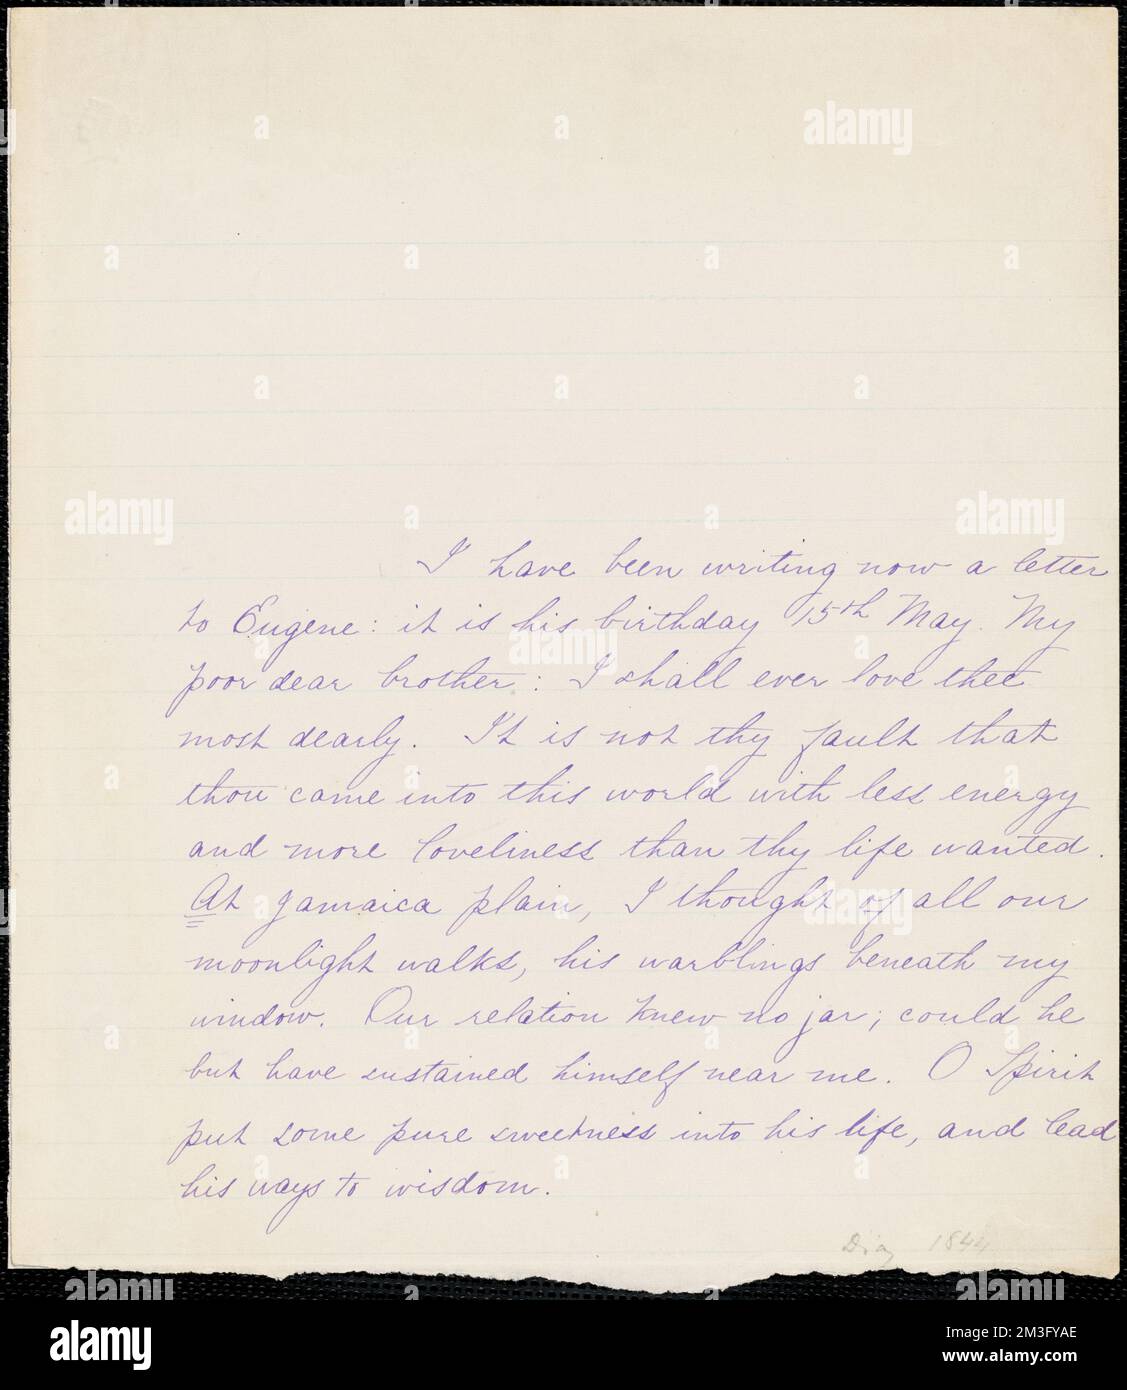 I have been writing now a letter
to Eugene: it is his birthday 15th May. My
poor dear brother: I shall ever love thee
most dearly. It is not thy fault that
thou came into this world with less energy
and more loveliness than thy life wanted.
At Jamaica plain, I thought of all our
moonlight walks, his warblings beneath my
window. Our relation knew no jar; could he
but have sustained himself near me. O Spirit
put some pure sweetness into his life, and lead
his ways to wisdom.
Diay 1844
alamy
Image ID: 2M3FYAE
www.alamy.com